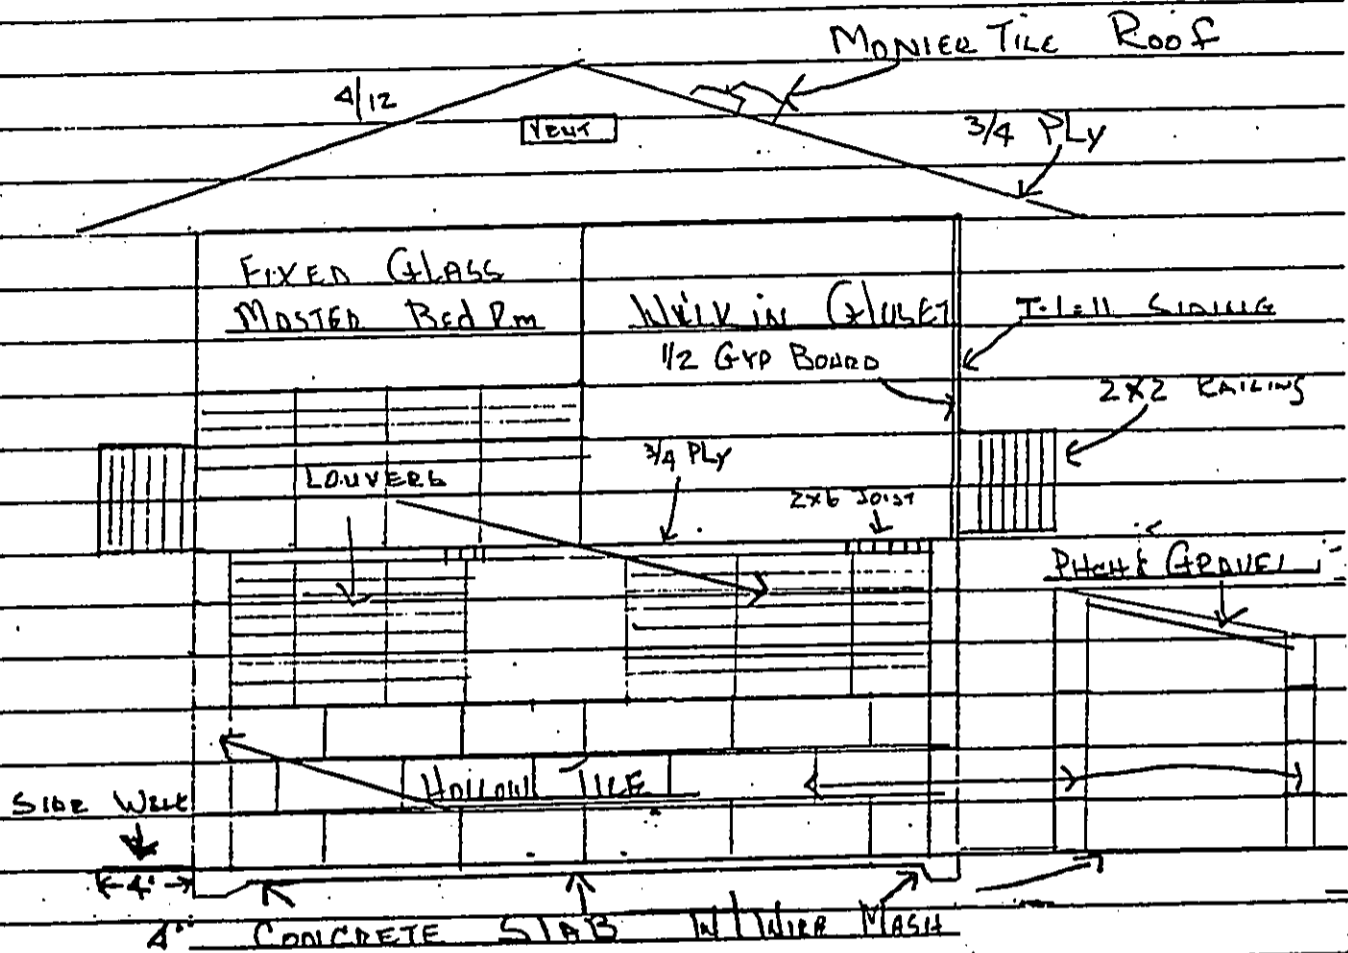 MONIER TILE ROOF
4/12
VENT
3/4 PLY
FIXED GLASS
MASTER BED RM
WALK IN CLOSET
T-1-11 SIDING
1/2 GYP BOARD
2X2 RAILING
3/4 PLY
LOUVERS
2X6 JOIST
PITCH & GRAVEL
HOLLOW TILE
SIDE WALK
4'
4" CONCRETE SLAB W/WIRE MASH